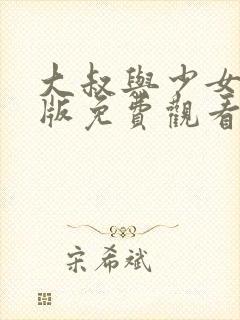 大叔與少女
版免費觀看
宋希斌